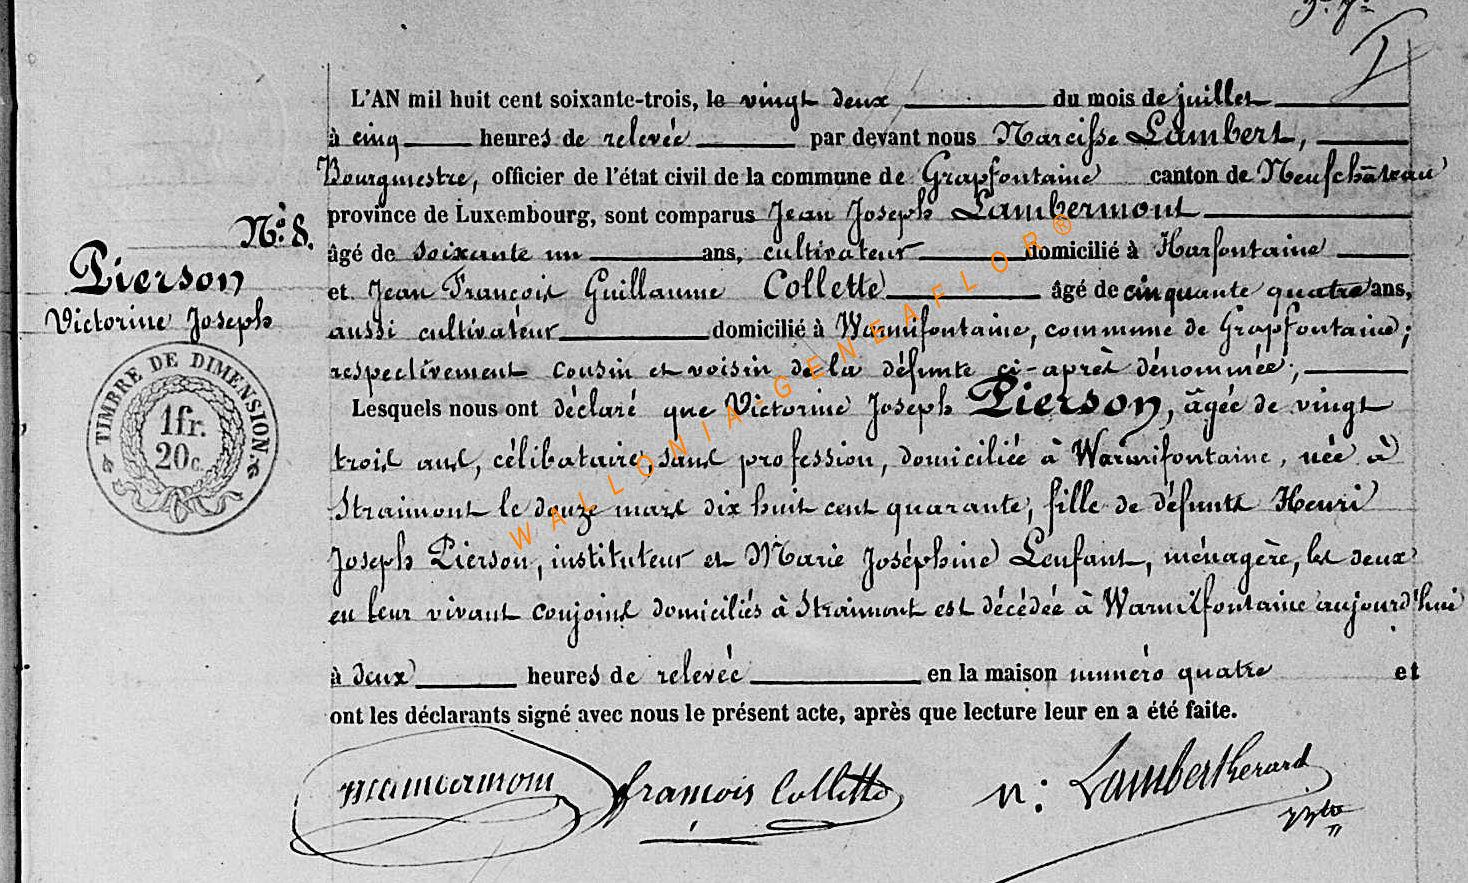 L'AN mil huit cent soixante-trois, le vingt deux du mois de juillet
à cinq heures de relevée par devant nous Narcisse Lambert,
Bourgmestre, officier de l'état civil de la commune de Grapfontaine canton de Neufchâteau
province de Luxembourg, sont comparus Jean Joseph Lambermont
âgé de soixante un ans, cultivateur domicilié à Harfontaine
et Jean François Guillaume Collette âgé de cinquante quatre ans,
aussi cultivateur domicilié à Warmifontaine, commune de Grapfontaine;
respectivement cousin et voisin de la défunte ci-après dénommée;
Lesquels nous ont déclaré que Victorine Joseph Pierson, âgée de vingt
trois ans, célibataire, sans profession, domiciliée à Warmifontaine, née à
Straimont le douze mars dix huit cent quarante, fille de défunts Henri
Joseph Pierson, instituteur et Marie Joséphine Lenfant, ménagère, les deux
en leur vivant conjoins domiciliés à Straimont est décédée à Warmifontaine aujourd'hui
à deux heures de relevée en la maison numéro quatre et
ont les déclarants signé avec nous le présent acte, après que lecture leur en a été faite.
N° 8.
Pierson
Victorine Joseph
TIMBRE DE DIMENSION
1fr.
20c.
françois Collette
n: Lambert
WALLONIA-GENEAFLOR®